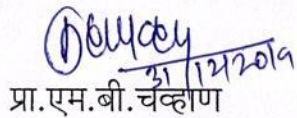 31/12/2019
प्रा.एम.बी.चव्हाण